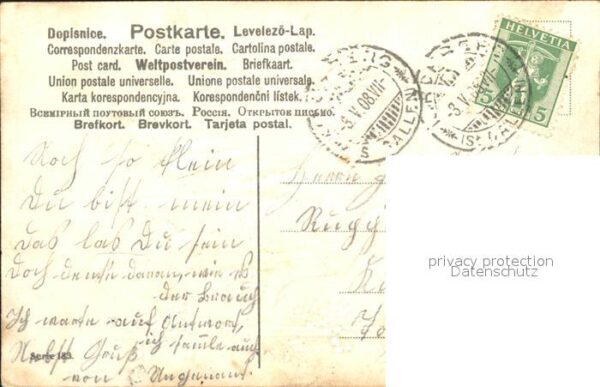 Dopisnice. Postkarte. Levelező-Lap.
Correspondenzkarte. Carte postale. Cartolina postale.
Post card. Weltpostverein. Briefkaart.
Union postale universelle. Unione postale universale.
Karta korespondencyjna. Korespondenční lístek.
Всемірный почтовый союзъ. Россія. Открытое письмо.
Brefkort. Brevkort. Tarjeta postal.
HELVETIA
5 5
8.V.08.VII
ST. GALLEN
8.V.08.VII
(ST. GALLEN)
Noch so klein
Du bist mein
Das las Du sein
Doch denke daran, wie es
der Brauch
Ich warte auf Antwort,
ich
auch
Nebst Gruß
von Ungenannt.
Serie 183.
Herrn
privacy protection
Datenschutz